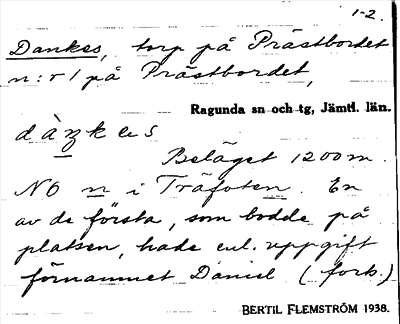 1-2.
Dankes, torp på Prästbordet
n:r 1 på Prästbordet,
Ragunda sn och tg, Jämtl. län.
dàŋkes
Beläget 1200 m.
NO n i Träfoten. En
av de första, som bodde på
platsen, hade enl. uppgift
förnamnet Daniel (fork.)
BERTIL FLEMSTRÖM 1938.